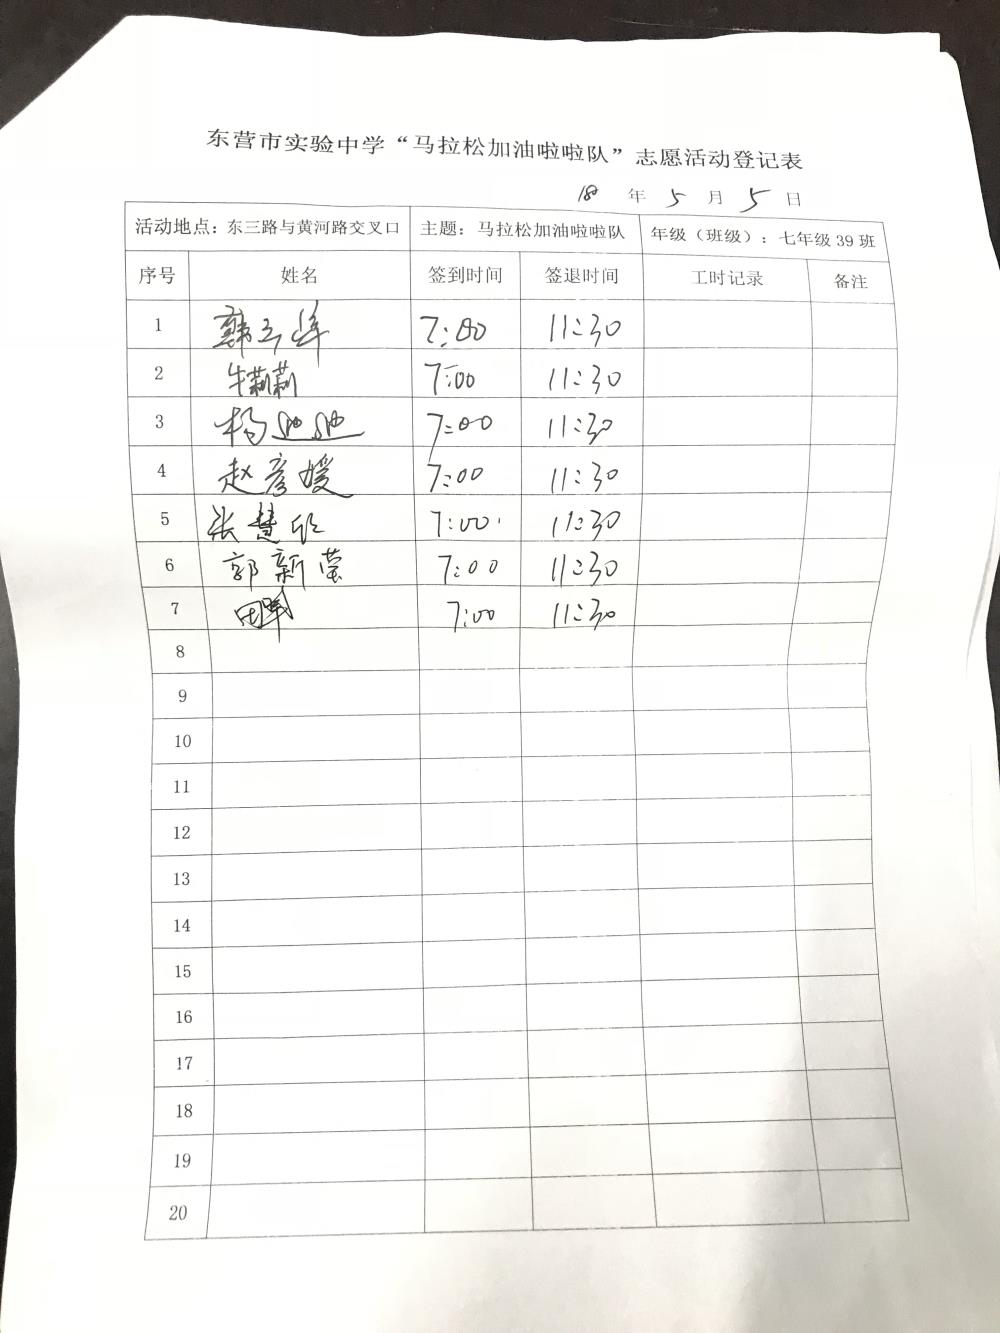 东营市实验中学“马拉松加油啦啦队”志愿活动登记表
18 年 5 月 5 日
活动地点：东三路与黄河路交叉口 主题：马拉松加油啦啦队 年级（班级）：七年级 39 班
序号 姓名 签到时间 签退时间 工时记录 备注
1 韩 7:00 11:30
2 牛莉莉 7:00 11:30
3 杨迪迪 7:00 11:30
4 赵彦媛 7:00 11:30
5 张慧欣 7:00 11:30
6 郭新莹 7:00 11:30
7 田 7:00 11:30
8
9
10
11
12
13
14
15
16
17
18
19
20